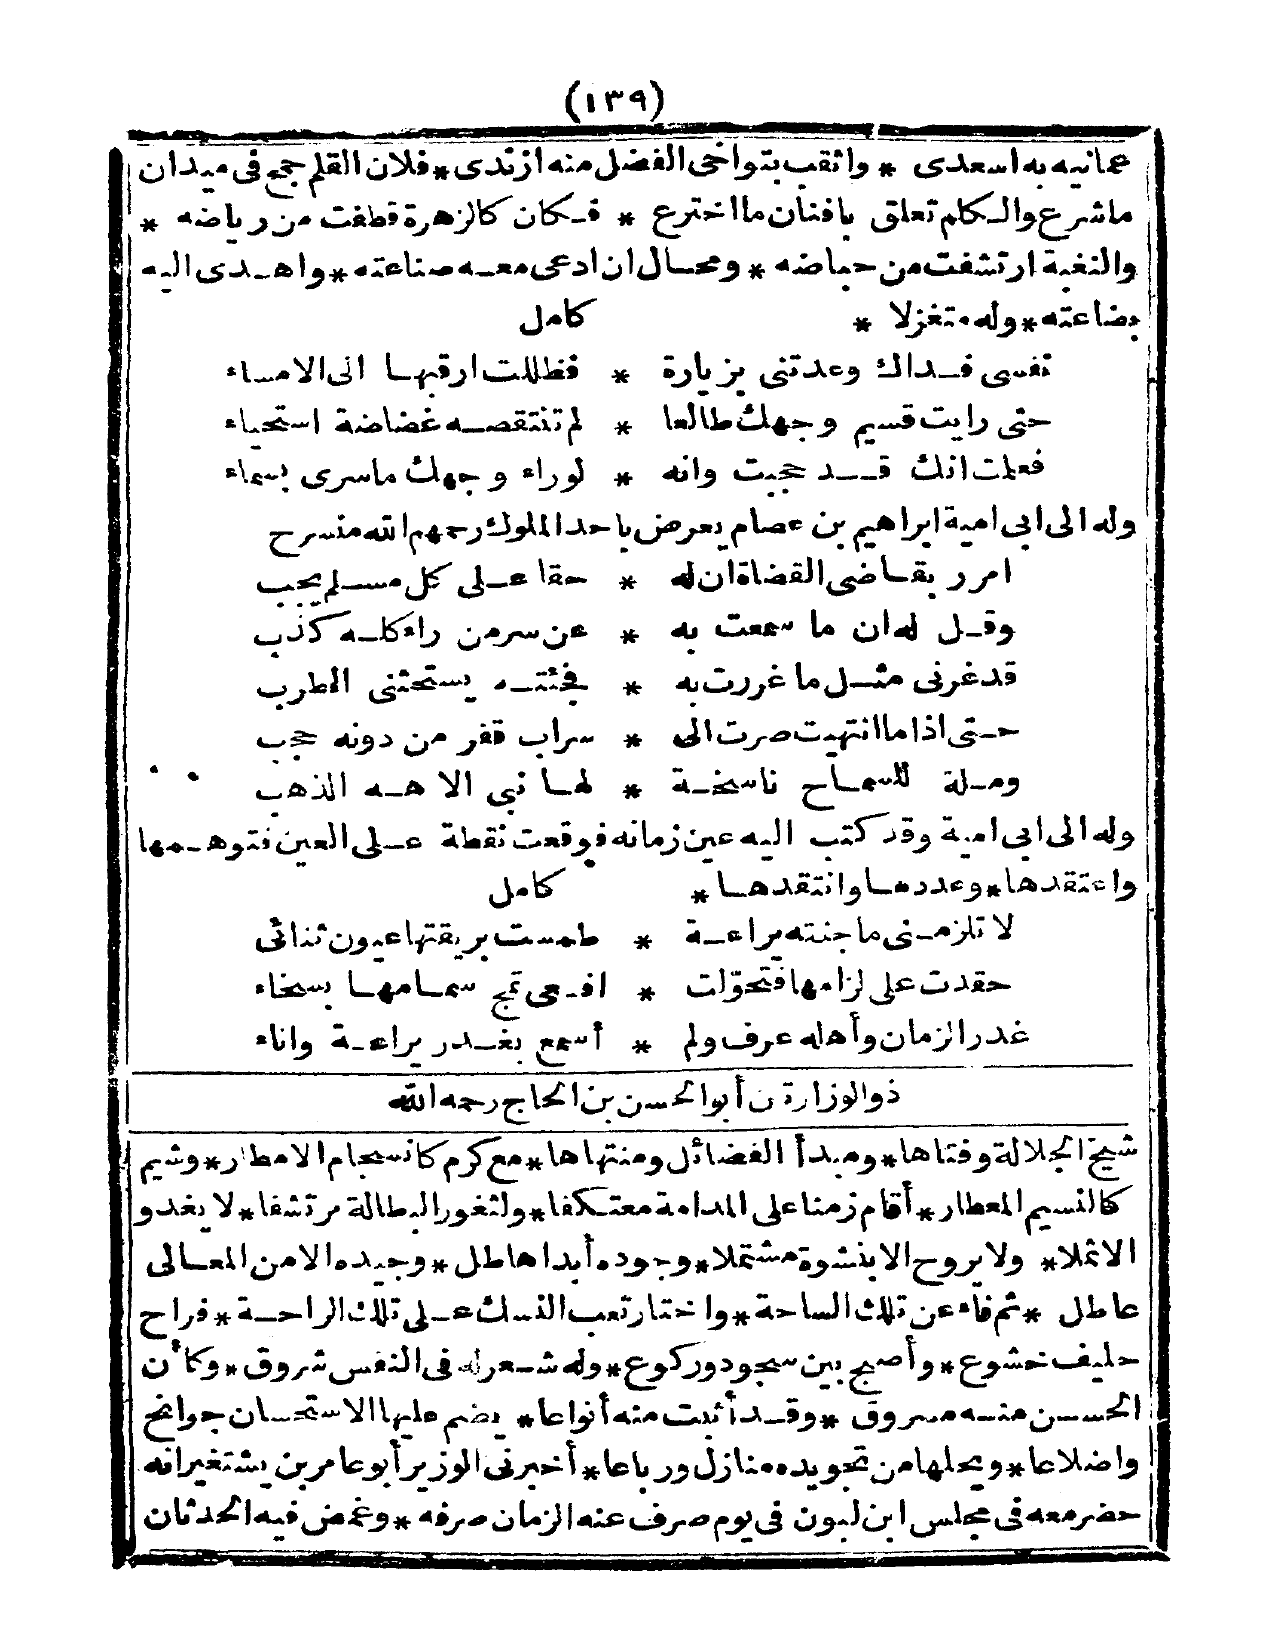 (١٣٩)
عمانيه به اسعدى * واثقب بتواخى الفضل منه ازندى * فلان القلم جمح فى ميدان
ما شرع والكلام تعلق بافنان ما اخترع * فكان كالزهرة قطفت من رياضه *
والنغبة ارتشفت من حياضه * ومحال ان ادعى معه صناعته * واهدى اليه
بضاعته * وله متغزلا * كامل
نفسى فداك وعدتنى بزيارة * فظللت ارقبها الى الامساء
حتى رايت قسيم وجهك طالعا * لم تنتقصه غضاضة استحياء
فعلمت انك قد حجبت وانه * لوراء وجهك ما سرى بسماء
وله الى ابى امية ابراهيم بن عصام يعرض باحد الملوك رحمهم الله منسرح
امرر بقاضى القضاة ان له * حقا على كل مسلم يجب
وقل له ان ما سمعت به * عن سر من راء كله كذب
قد غرنى مثل ما غررت به * فجئته يستحثنى الطرب
حتى اذا ما انتهيت صرت الى * سراب قفر من دونه حجب
وملة للسماح ناسخة * لها نبى الاهه الذهب
وله الى ابى امية وقد كتب اليه عين زمانه فوقعت نقطة على العين فتوهمها
واعتقدها * وعددها وانتقدها * كامل
لا تلزمنى ما جنته يراعة * طمست بريقتها عيون ثنائى
حقدت على لزامها فتحوّلت * افعى تمج سمامها بسخاء
غدر الزمان وأهله عرف ولم * أسمع بغدر يراعة واناء
ذو الوزارتين أبو الحسن بن الحاج رحمه الله
شيخ الجلالة وفتاها * ومبدأ الفضائل ومنتهاها * مع كرم كانسجام الامطار * وشيم
كالنسيم المعطار * أقام زمنا على المدامة معتكفا * ولثغور البطالة مرتشفا * لا يغدو
الا ثملا * ولا يروح الا بنشوة مشتملا * وجوده أبدا هاطل * وجيده الا من المعالى
عاطل * ثم فاء عن تلك الساحة * واختار تعب النسك على تلك الراحة * فراح
حليف خشوع * وأصبح بين سجود وركوع * وله شعر له فى النفس شروق * وكأن
الحسن منه مسروق * وقد أثبت منه أنواعا * يضم عليها الاستحسان جوانح
واضلاعا * ويحلها من تجويده منازل ورباعا * أخبرنى الوزير أبو عامر بن يشتغير انه
حضر معه فى مجلس ابن لبون فى يوم صرف عنه الزمان صرفه * وغمض فيه الحدثان